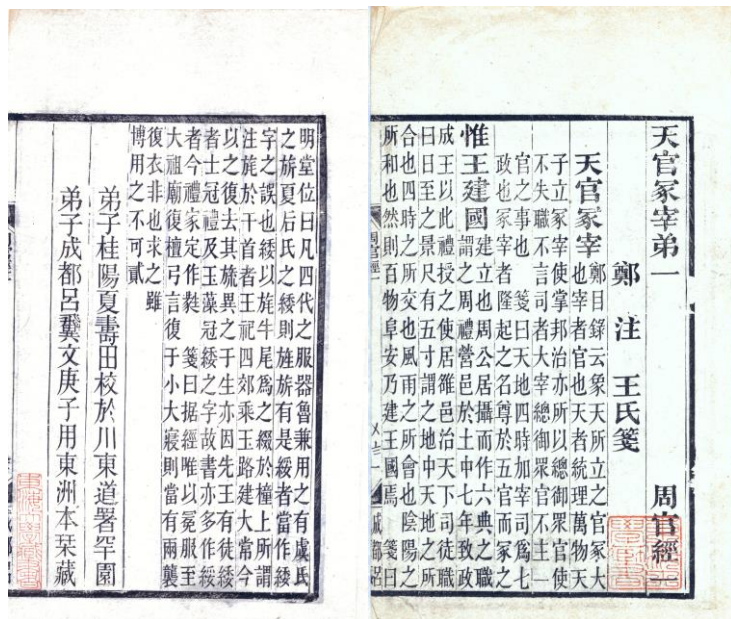 天官冢宰弟一 周官經一
鄭注 王氏箋
天官冢宰 鄭目錄云象天所立之官冢大
也宰者官也天者統理萬物天
子立冢宰使掌邦治亦所以總御眾官使
不失職不言司者大宰總御眾官不主一
官之事也 箋曰天地四時加宰司爲七
政也冢宰者隆起之名尊於五官而冢之
惟王建國 建立也周公居攝而作六典之職
謂之周禮營邑於土中七年致政
成王以此禮授之使居雒邑治天下司徒職
曰日至之景尺有五寸謂之地中天地之所
合也四時之所交也風雨之所會也陰陽之
所和也然則百物阜安乃建王國焉 箋曰
周官經一
明堂位曰凡四代之服器魯兼用之有虞氏
之旂夏后氏之綏則旌旂有是綏者當作緌
字之誤也緌以旄牛尾爲之綴於橦上所謂
注旄於干首者王祀四郊乘玉路建大常今
以之復去其旒異之于生亦因先王有徒緌
者士冠禮及玉藻冠緌之字故書亦多作綏
者今禮家定作蕤 箋曰据經唯以冕服至
大祖廟復檀弓言復于小大寢則當有兩襲
復衣非也求之雖
博用之不可貳
弟子桂陽夏壽田校於川東道署罕園
弟子成都呂翼文庚子用東洲本栞藏